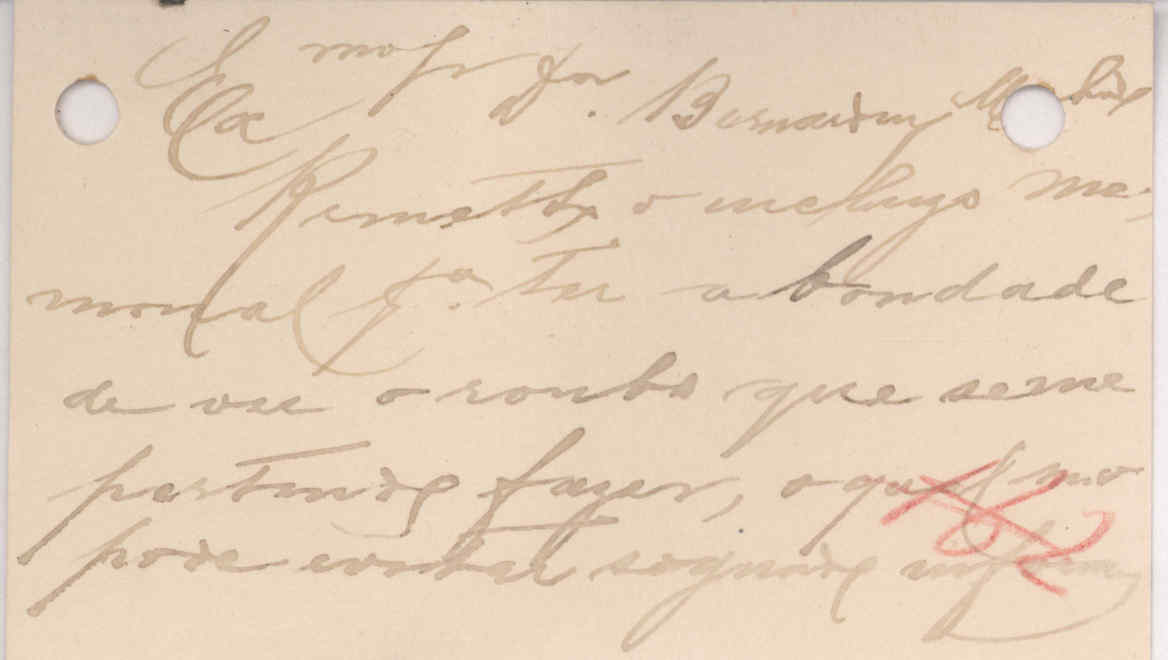 Exmo Sr Dr. Bernardino Machado
Remetto o incluzo me-
morial pa. ter a bondade
de ver o roubo que se me
pertende fazer, o que
pode evitar segundo